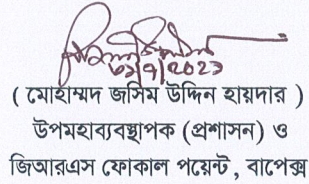 ( মোহাম্মদ জসিম উদ্দিন হায়দার )
উপমহাব্যবস্থাপক (প্রশাসন) ও
জিআরএস ফোকাল পয়েন্ট , বাপেক্স